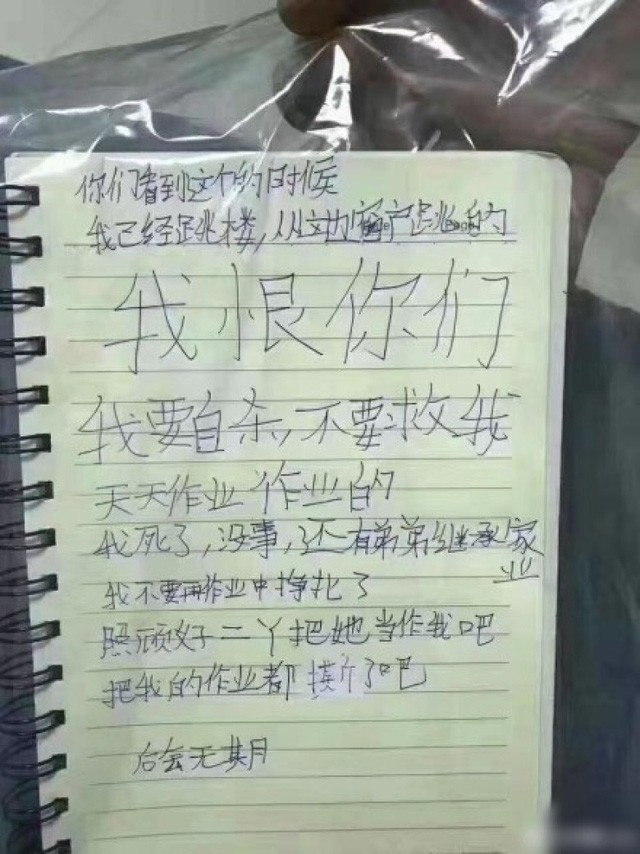 你们看到这个的时候
我已经跳楼,从这边窗户跳的
我恨你们
我要自杀,不要救我
天天作业作业的
我死了,没事,还有弟弟继承家
业
我不要再作业中挣扎了
照顾好二丫把她当作我吧
把我的作业都撕了吧
后会无期